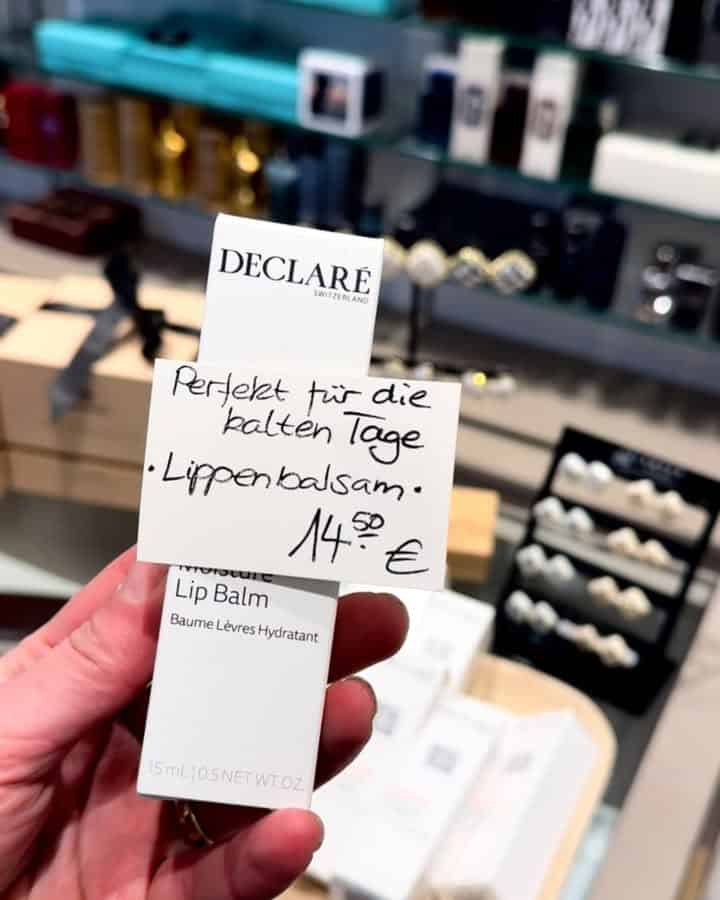 DECLARÉ
SWITZERLAND
Perfekt für die
kalten Tage
• Lippenbalsam •
14.50 €
Moisture
Lip Balm
Baume Lèvres Hydratant
15 mL | 0.5 NET WT. OZ.